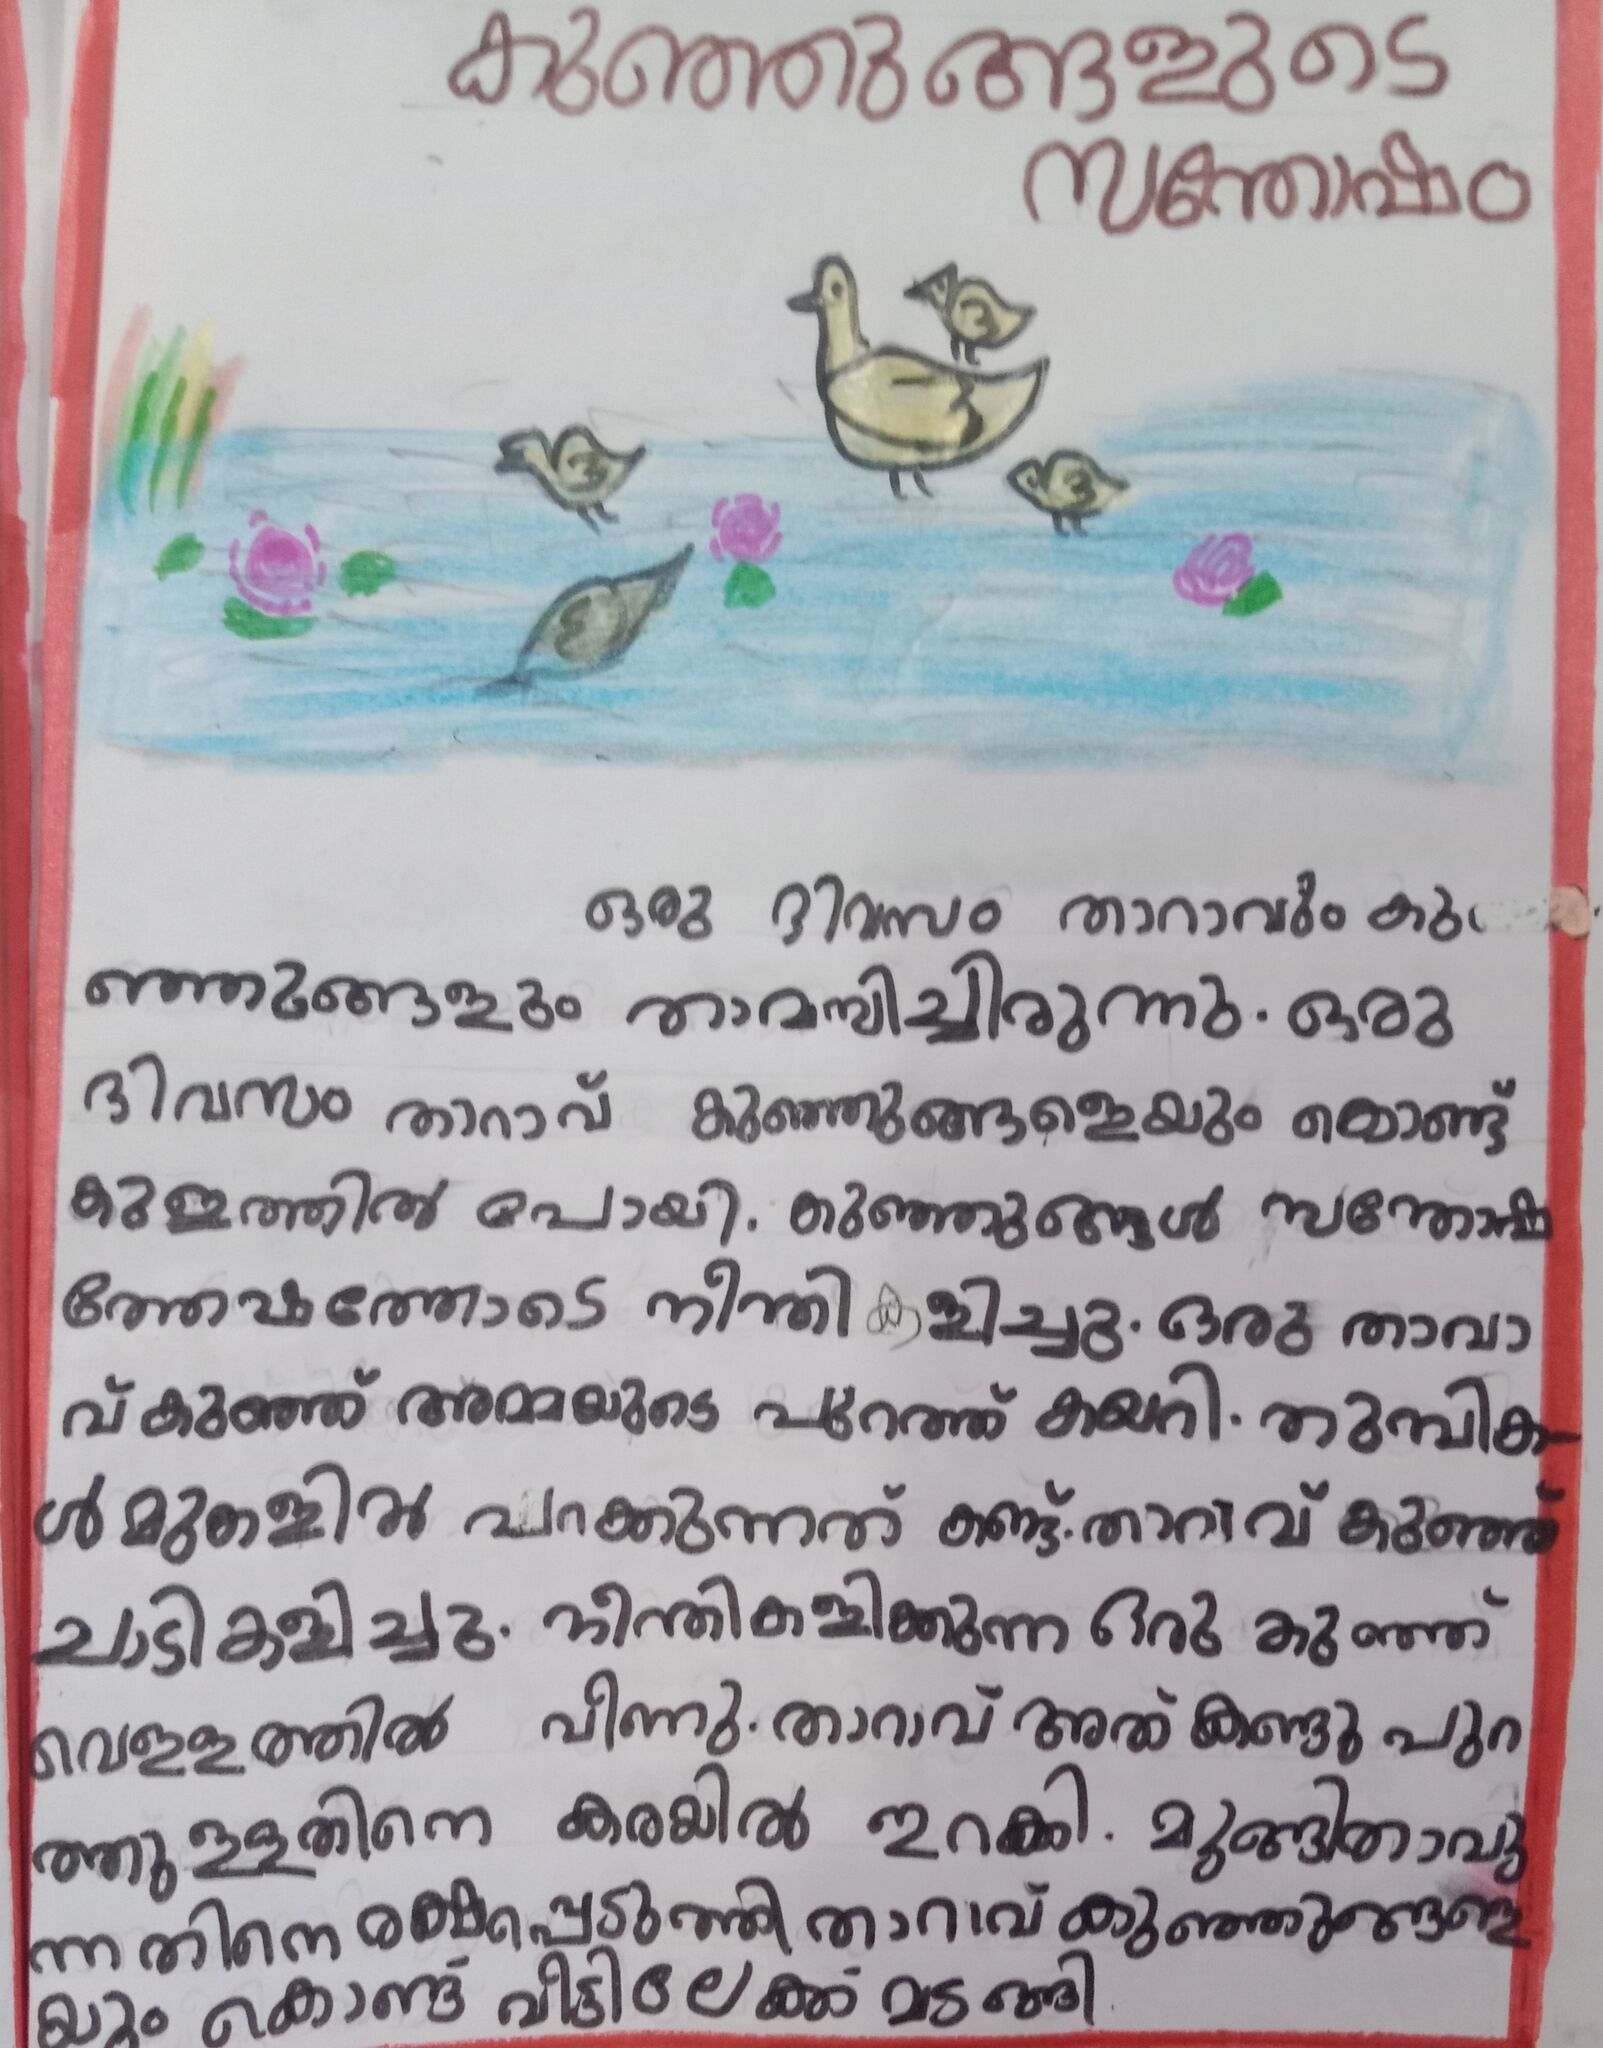 കുഞ്ഞുങ്ങളുടെ
സന്തോഷം
ഒരു ദിവസം താറാവും കു
ഞ്ഞുങ്ങളും താമസിച്ചിരുന്നു. ഒരു
ദിവസം താറാവ് കുഞ്ഞുങ്ങളെയും കൊണ്ട്
കുളത്തിൽ പോയി. കുഞ്ഞുങ്ങൾ സന്തോഷ
ത്തേഷത്തോടെ നീന്തി കളിച്ചു. ഒരു താവാ
വ് കുഞ്ഞ് അമ്മയുടെ പുറത്ത് കയറി. തുമ്പിക-
ൾ മുകളിൽ പറക്കുന്നത് കണ്ട്. താറാവ് കുഞ്ഞ്
ചാടികളിച്ചു. നീന്തികളിക്കുന്ന ഒരു കുഞ്ഞ്
വെള്ളത്തിൽ വീന്നു. താറാവ് അത് കണ്ടു പുറ
ത്തുള്ളതിനെ കരയിൽ ഇറക്കി. മുങ്ങിതാവു
ന്നതിനെ രക്ഷപ്പെടുത്തി താറാവ് കുഞ്ഞുങ്ങളെ
യും കൊണ്ട് വീട്ടിലേക്ക് മടങ്ങി.